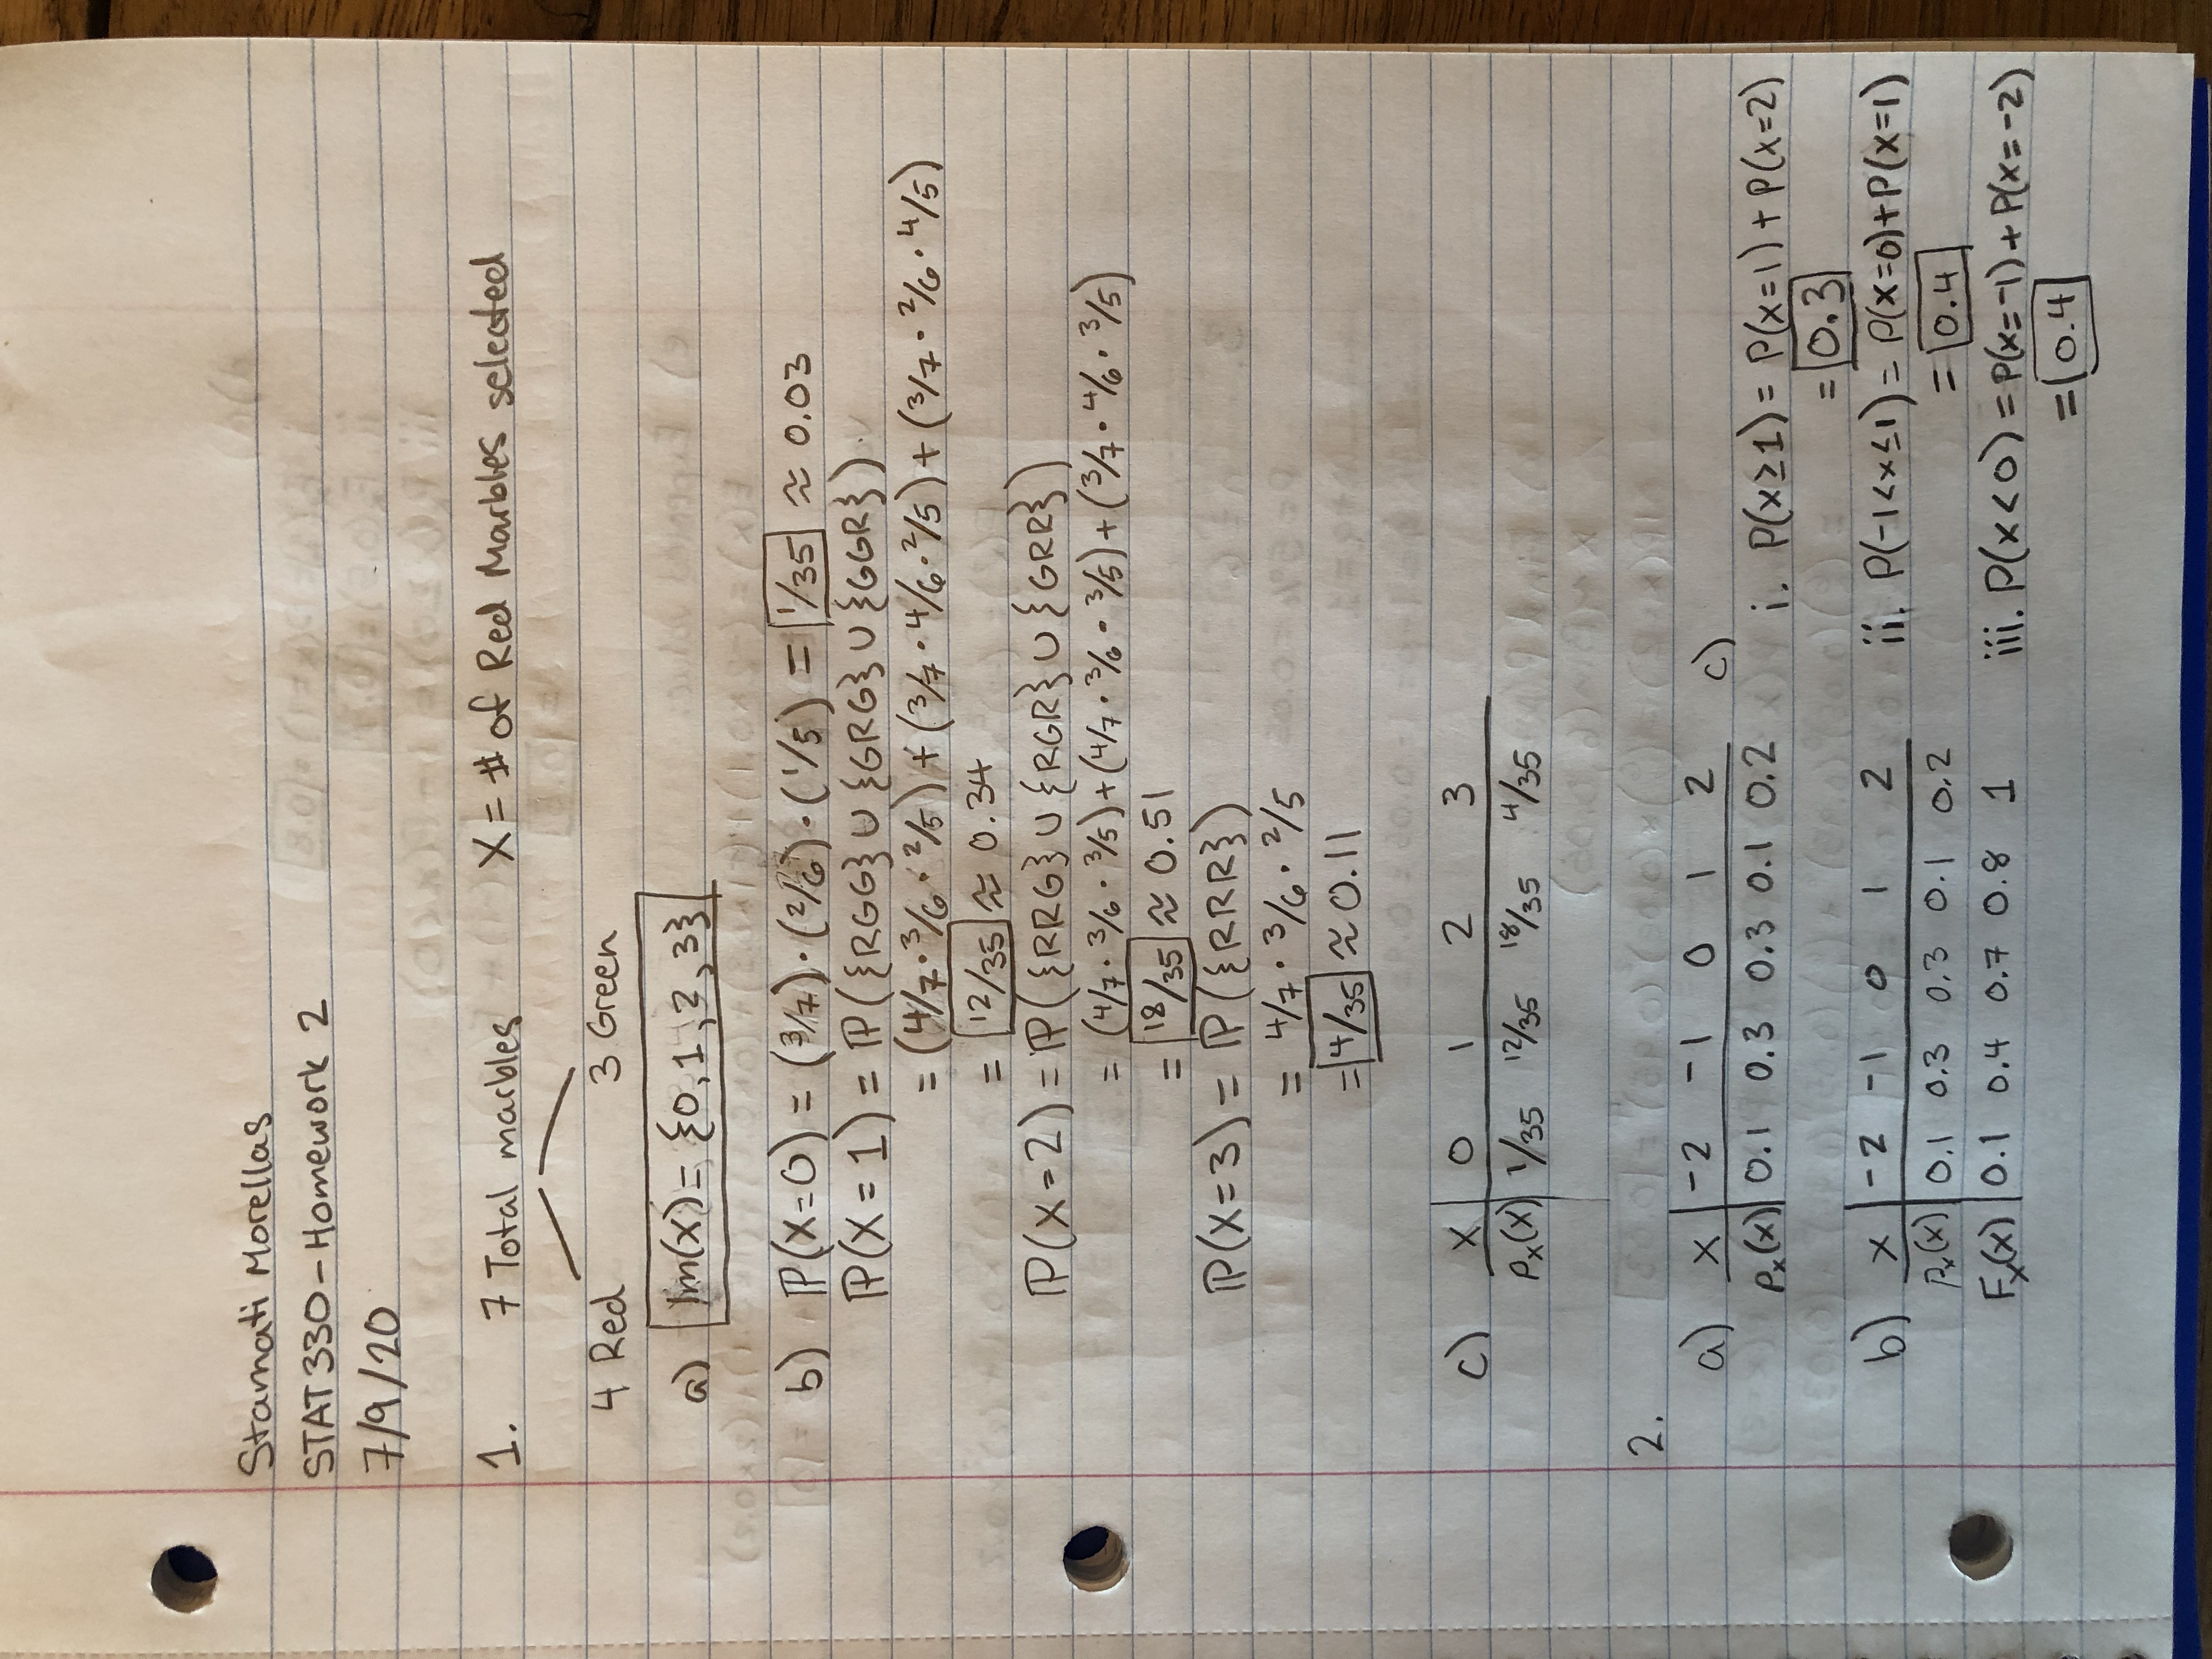 Stamati Morellas
STAT 330 - Homework 2
7/9/20
1. 7 Total marbles X = # of Red Marbles selected
4 Red 3 Green
a) Im(X) = {0, 1, 2, 3}
b) ℙ(X=0) = (3/7)·(2/6)·(1/5) = 1/35 ≈ 0.03
ℙ(X=1) = ℙ({RGG} ∪ {GRG} ∪ {GGR})
= (4/7·3/6·2/5) + (3/7·4/6·2/5) + (3/7·2/6·4/5)
= 12/35 ≈ 0.34
ℙ(X=2) = ℙ({RRG} ∪ {RGR} ∪ {GRR})
= (4/7·3/6·3/5) + (4/7·3/6·3/5) + (3/7·4/6·3/5)
= 18/35 ≈ 0.51
ℙ(X=3) = ℙ({RRR})
= 4/7·3/6·2/5
= 4/35 ≈ 0.11
c) X 0 1 2 3
Px(X) 1/35 12/35 18/35 4/35
2.
a) X -2 -1 0 1 2
Px(X) 0.1 0.3 0.3 0.1 0.2
b) X -2 -1 0 1 2
Px(X) 0.1 0.3 0.3 0.1 0.2
Fx(X) 0.1 0.4 0.7 0.8 1
c)
i. P(X≥1) = P(X=1) + P(X=2)
= 0.3
ii. P(-1<X≤1) = P(X=0) + P(X=1)
= 0.4
iii. P(X<0) = P(X=-1) + P(X=-2)
= 0.4